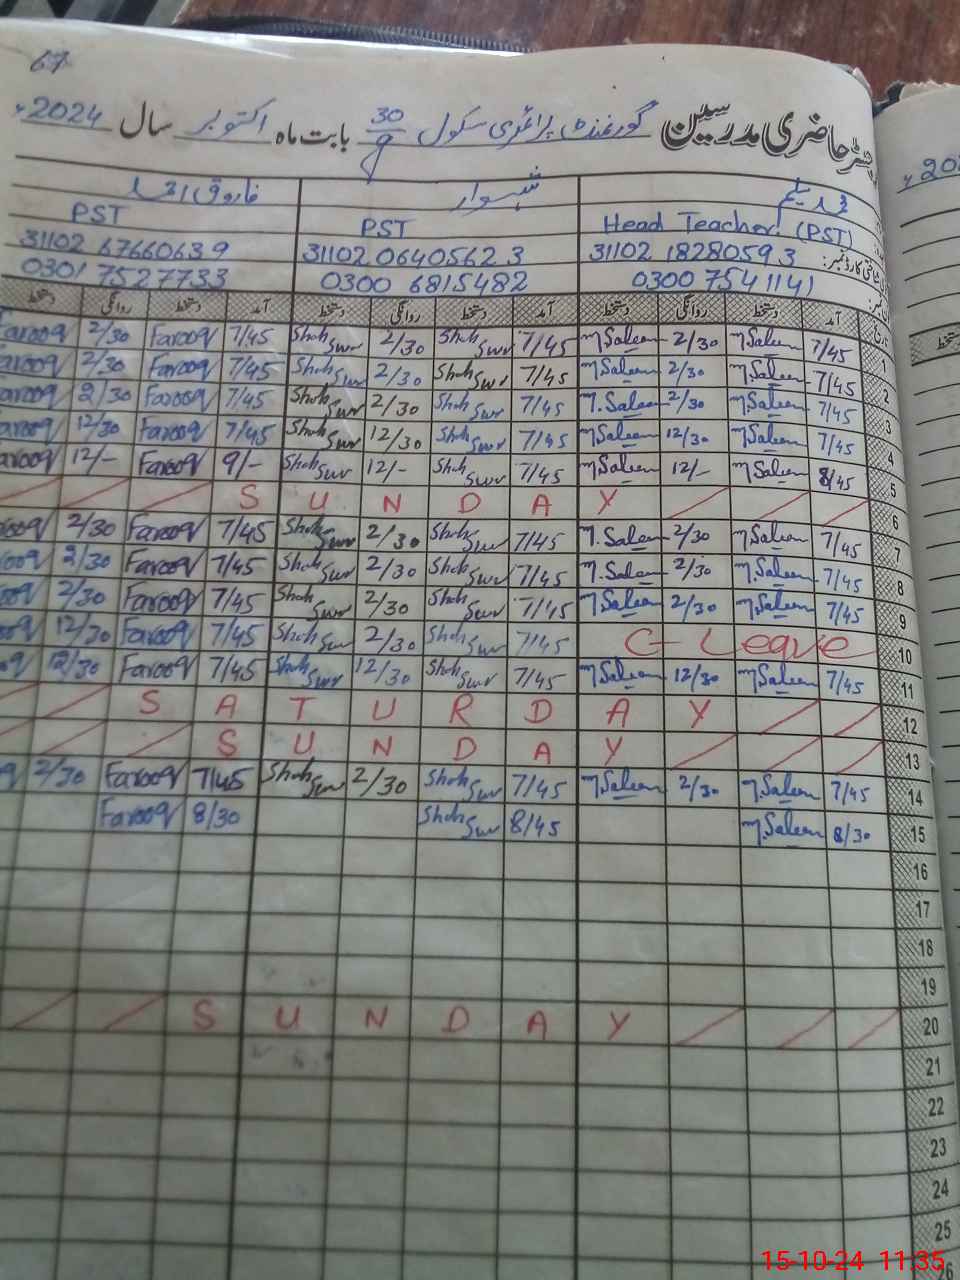 67
رجسٹر حاضری مدرسین گورنمنٹ پرائمری سکول 30/9 بابت ماہ اکتوبر سال 2024ء
محمد سلیم شہسوار فاروق احمد
Head Teacher (PST) PST PST
31102 1828059 3 31102 0640562 3 31102 6766063 9
0300 7541141 0300 6815482 0301 7527733
تاریخ آمد دستخط روانگی دستخط آمد دستخط روانگی دستخط آمد دستخط روانگی دستخط
1 7/45 M.Saleem 2/30 M.Saleem 7/45 Shah Swr 2/30 Shah Swr 7/45 Farooq 2/30 Farooq
2 7/45 M.Saleem 2/30 M.Saleem 7/45 Shah Swr 2/30 Shah Swr 7/45 Farooq 2/30 Farooq
3 7/45 M.Saleem 2/30 M.Saleem 7/45 Shah Swr 2/30 Shah Swr 7/45 Farooq 2/30 Farooq
4 7/45 M.Saleem 12/30 M.Saleem 7/45 Shah Swr 12/30 Shah Swr 7/45 Farooq 12/30 Farooq
5 8/45 M.Saleem 12/- M.Saleem 7/45 Shah Swr 12/- Shah Swr 9/- Farooq 12/- Farooq
6 SUNDAY
7 7/45 M.Saleem 2/30 M.Saleem 7/45 Shah Swr 2/30 Shah Swr 7/45 Farooq 2/30 ooq
8 7/45 M.Saleem 2/30 M.Saleem 7/45 Shah Swr 2/30 Shah Swr 7/45 Farooq 2/30 ooq
9 7/45 M.Saleem 2/30 M.Saleem 7/45 Shah Swr 2/30 Shah Swr 7/45 Farooq 2/30 oq
10 C-Leave 7/45 Shah Swr 2/30 Shah Swr 7/45 Farooq 12/30 oq
11 7/45 M.Saleem 12/30 M.Saleem 7/45 Shah Swr 12/30 Shah Swr 7/45 Farooq 12/30 q
12 SATURDAY
13 SUNDAY
14 7/45 M.Saleem 2/30 M.Saleem 7/45 Shah Swr 2/30 Shah Swr 7/45 Farooq 2/30 q
15 8/30 M.Saleem 8/45 Shah Swr 8/30 Farooq
16
17
18
19
20 SUNDAY
21
22
23
24
25
26
دستخط
15-10-24 11:35